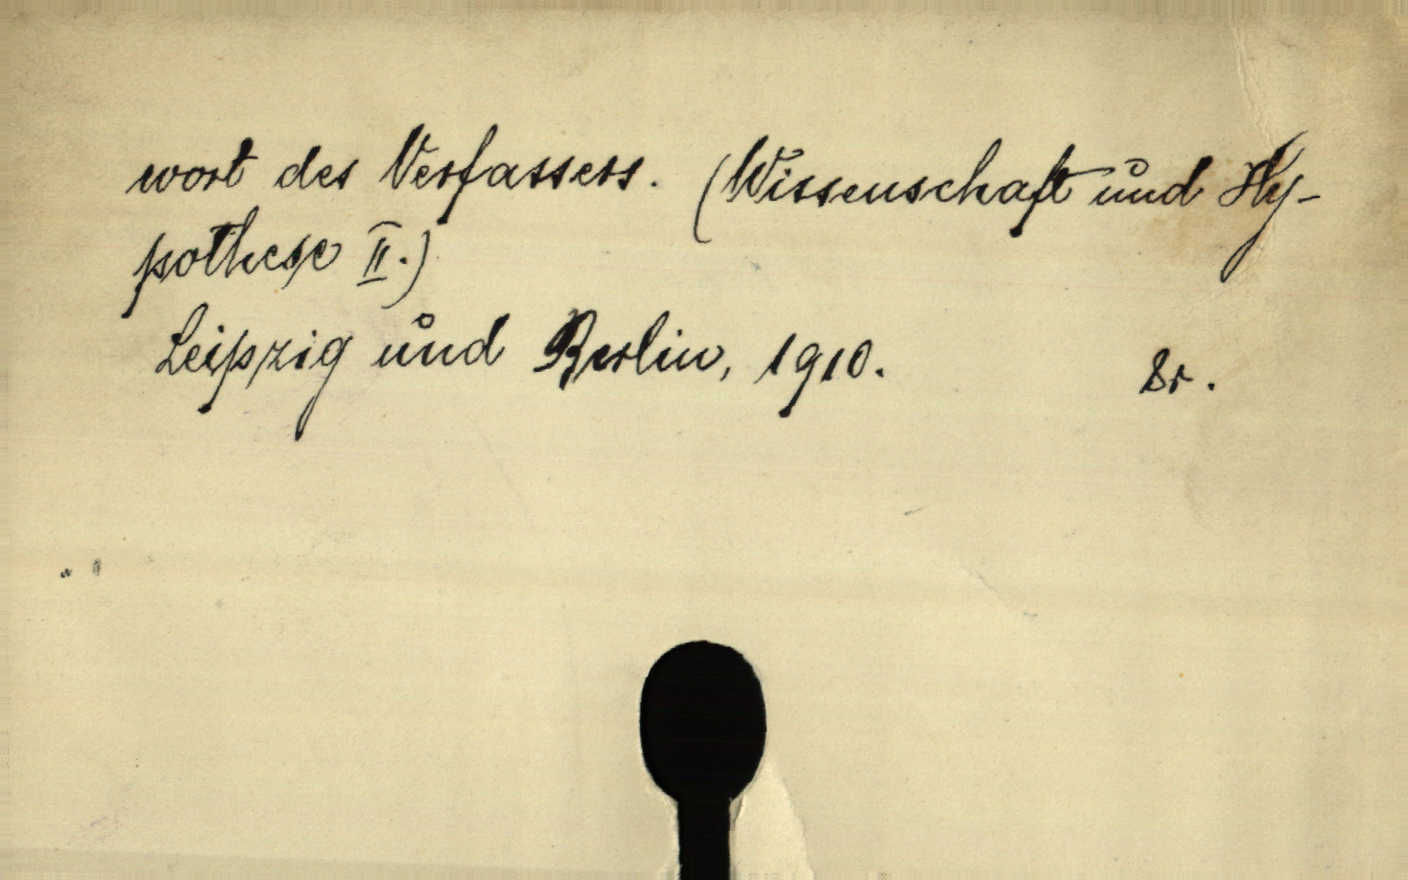 wort des Verfassers. (Wissenschaft und Hy-
pothese II.)
Leipzig und Berlin, 1910. 8r.